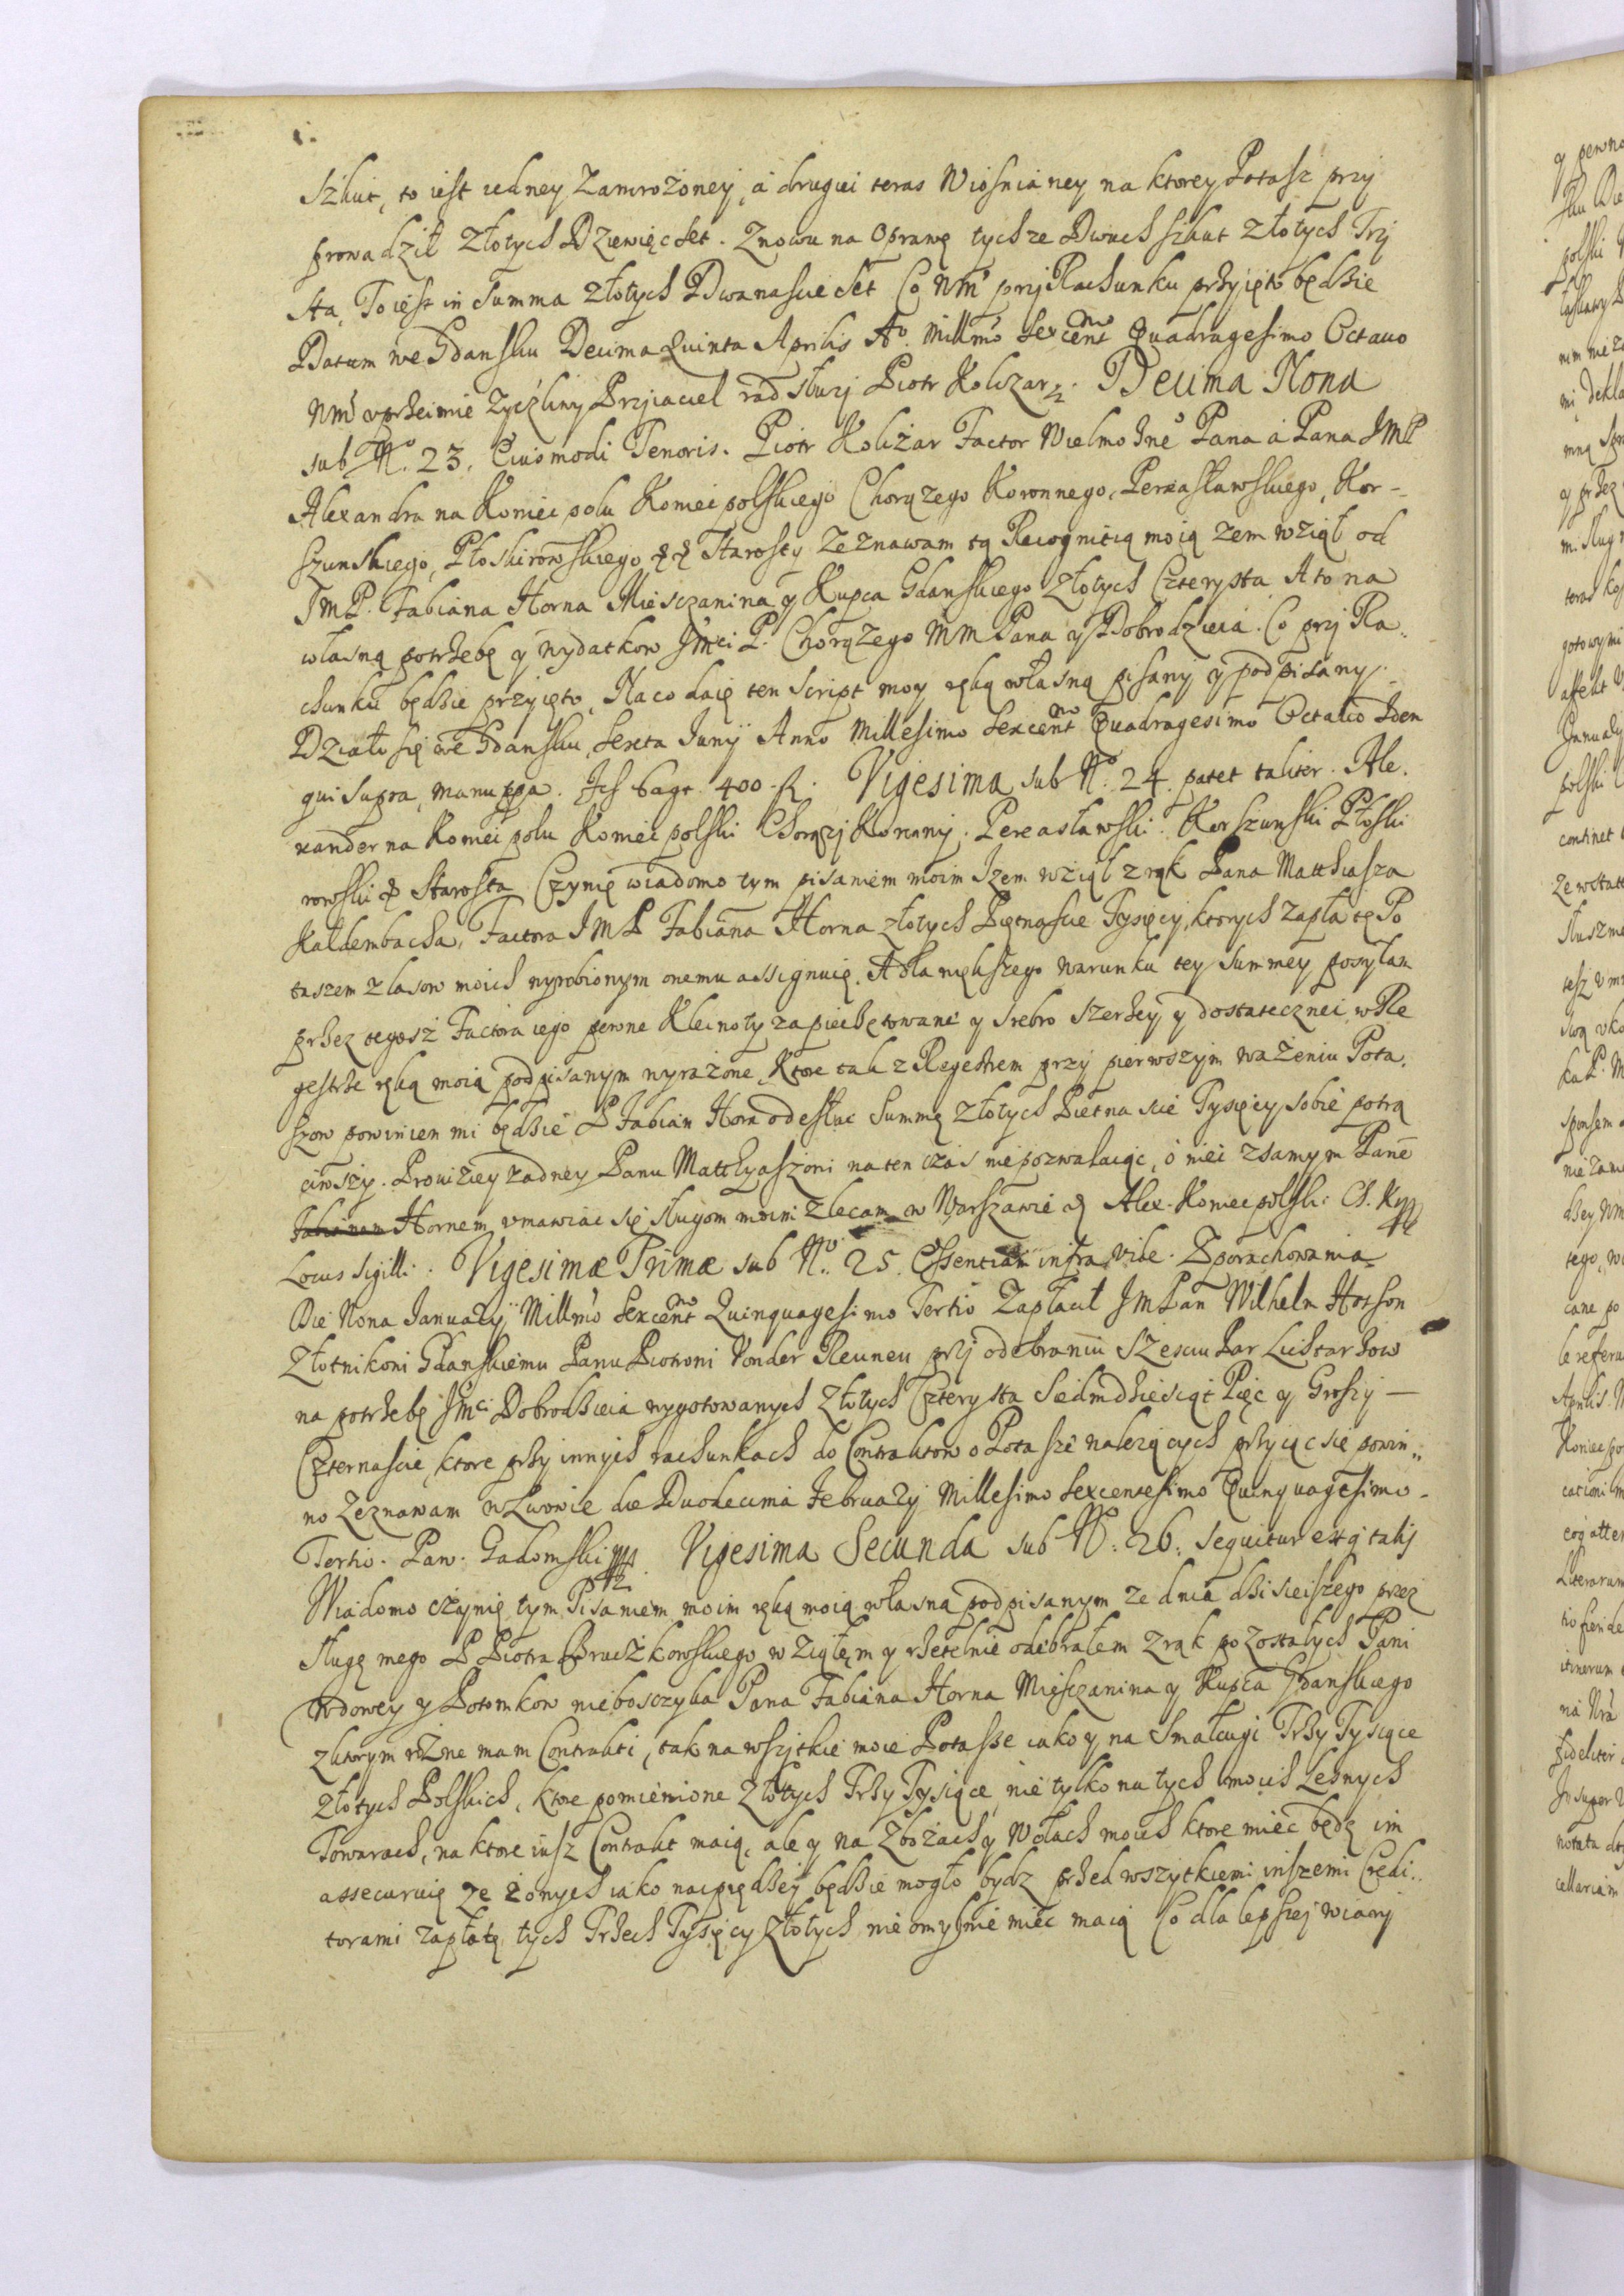 Szkut, to iest iedney Zamrożoney, á drugiei teras Wiosnianey na ktorey Potasz przy
prowadził Złotych Dziewięc Set. Znowu na Oprawę tychże Dwuch szkut Złotych Trzy
sta, To iest in Summa Złotych Dwanascie Set Co Wmć przy Rachunku przyięto będzie
Datum we Gdansku Decima Quinta Aprilis Aº. Millmo Sexcentmo Quadragesimo Octauo
Wmć uprzeimie Zyczliwy Przyiaciel rad służy Piotr Kolczar. Decima Nona
sub Nº. 23. Eiusmodi Tenoris. Piotr Kolczar Factor Wielmożnego Pana á Pana JMP
Alexandra na Koniecpolu Koniecpolskiego Chorążego Koronnego, Pereasławskiego, Kor-
szunskiego, Płoskirowskiego &&. Starosty Zeznawam tą Recognitią moią żem wziął od
JMP. Fabiana Horna Miesczanina y Kupca Gdanskiego Złotych Czterysta A to na
własną potrzebę y wydatkow JMci P. Chorążego MM Pana y Dobrodzieia. Co przy Ra-
chunku będzie przyięto, Na co daię ten Script moy ręką własną pisany y podpisany.
Działo się we Gdansku, Sexta Juny Anno Millesimo Sexcentmo Quadragesimo Octauo Idem
qui supra, manu ppa. 400 fl. Vigesima sub Nº. 24. patet taliter. Ale-
xander na Koniecpolu Koniecpolski Chorąży Koronny. Pereasławski. Korszunski Płoski
rowski & Starosta Czynię wiadomo tym pisaniem moim Iżem wziął z rąk Pana Matthiasza
Kaldembacha, Factora JMP Fabiana Horna złotych Piętnascie Tysięcy, ktorych zapłatę Po
taszem z lasow moich wyrobionym onemu assignuię. A dla większego warunku tey summey posyłam
przez tegosz Factora iego pewne Kleinoty zapieczętowane y srebro szerzey y dostatecznei w Re
gestrze ręką moią podpisanym wyrażone, Ktore tak z Regestrem przy pierwszym ważeniu Pota-
szow powinien mi będzie P Fabian Horn odesłac Summę złotych Pietnascie Tysięcy sobie potrą
ciwszy. Prouiziey żadney Panu Matthyaszowi na ten czas nie pozwalaiąc, o niei z samym Panē
Fabianem Hornem umawiac się sługom moim zlecam w Warszawie Alex. Koniecpolski Ch. K
Locus Sigilli. Vigesimæ Primæ sub Nº. 25. Essentiam infra vide. Z porachowania
Die Nona January Millmo Sexcentmo Quinquagesimo Tertio Zapłacił JmPan Wilhelm Hotson
Złotnikowi Gdanskiemu Panu Piotrowi Vonder Rennen przy odebraniu Szesciu Par Lichtarzow
na potrzebę JMci Dobrodzieia wygotowanych Złotych Czterysta Siedmdziesiąt Pięc y Groszy —
Czternascie, ktore przy innych rachunkach do Contraktow o Potasze należących przyiąc się powin-
no Zeznawam w Lwowie die Duodecima February Millesimo Sexcentesimo Quinquagesimo
Tertio. Paw. Gadomski Vigesima Secunda sub Nº. 26. sequitur estq talis
Wiadomo czynię tym Pisaniem moim ręką moią własną podpisanym że dnia dzisieiszego przez
Sługę mego P Piotra Bruszkowskiego wziąłem y rzetelnie odebrałem z rąk pozostałych Pani
Wdowey y Potomkow nieboszczyka Pana Fabiana Horna Miesczanina y Kupca Gdanskiego
z ktorym rożne mam Contrakti, tak na wszytkie moie Potasze iako y na Smalcugi Trzy Tysiące
złotych Polskich, ktore pomienione Złotych Trzy Tysiące nie tylko na tych moich Lesnych
Towarach, na ktore iusz Contrakt maią, ale y na Zbożach y Wołach moich ktore miec będę im
assecuruię że z onych iako naiprędzey będzie mogło bydz przed wszytkiemi inszemi Credi-
torami zapłatę tych Trzech Tysięcy Złotych nieomylnie miec maią Co dla lepszey wiary